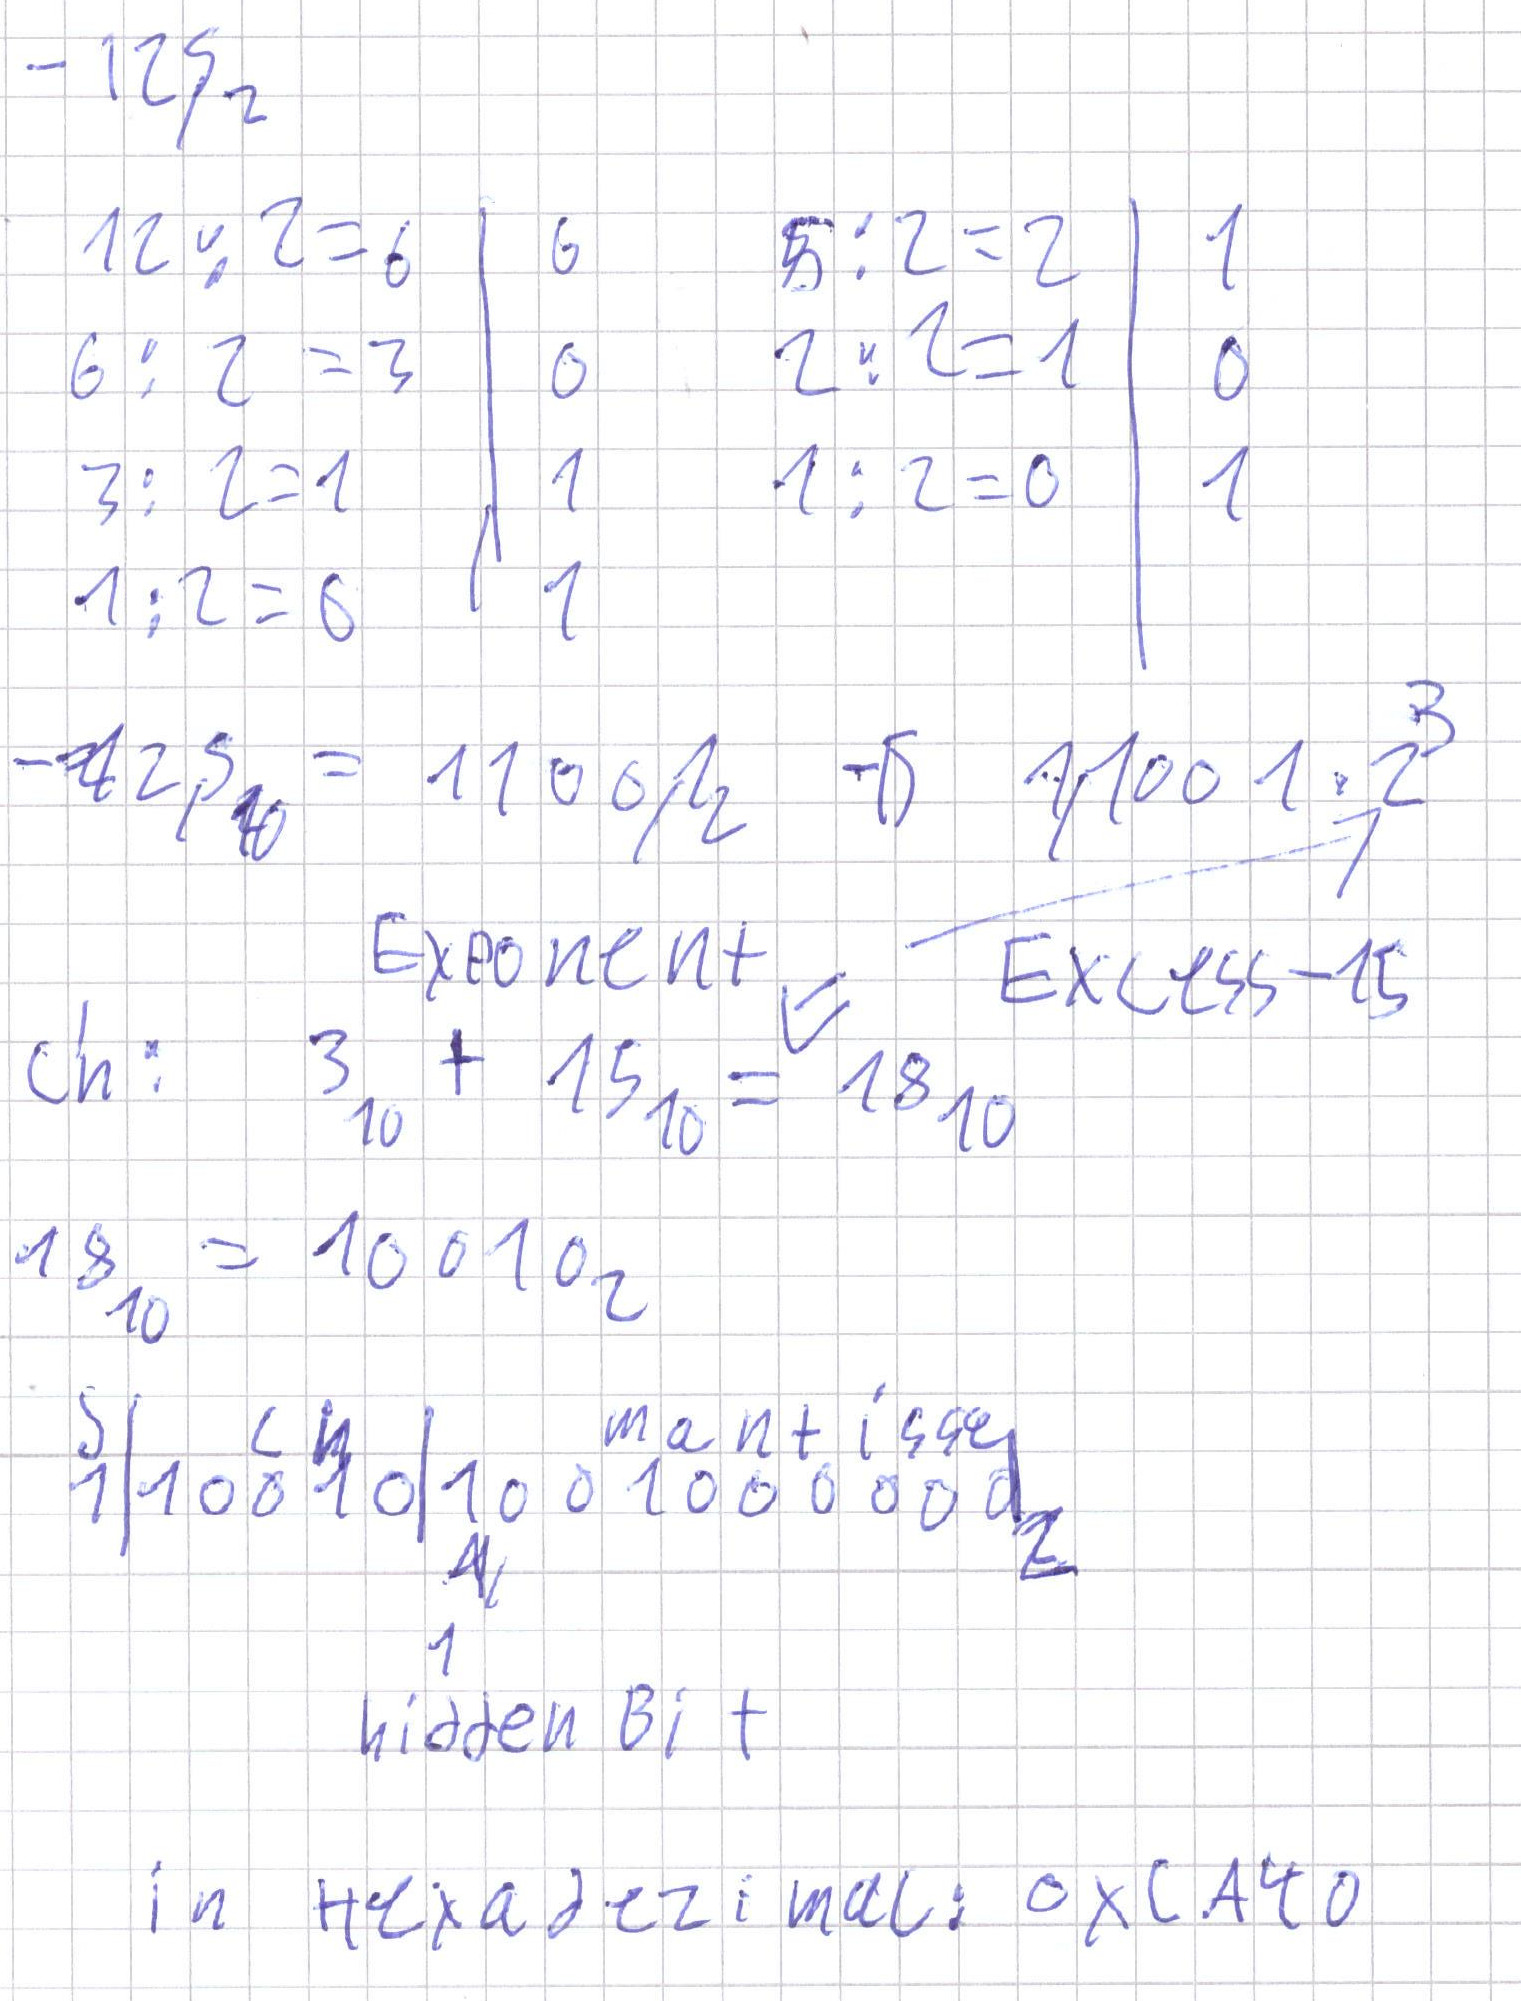 -12,5₂
12 : 2 = 6 | 0 5 : 2 = 2 | 1
6 : 2 = 3 | 0 2 : 2 = 1 | 0
3 : 2 = 1 | 1 1 : 2 = 0 | 1
1 : 2 = 0 | 1
-12,5₁₀ = 1100,1₂ → 1,1001 · 2³
Exponent Excess-15
ch: 3₁₀ + 15₁₀ = 18₁₀
18₁₀ = 10010₂
S | ch | mantisse
1 | 10010 | 1001000000₂
1,
1
hidden Bit
in Hexadezimal: 0xCA40